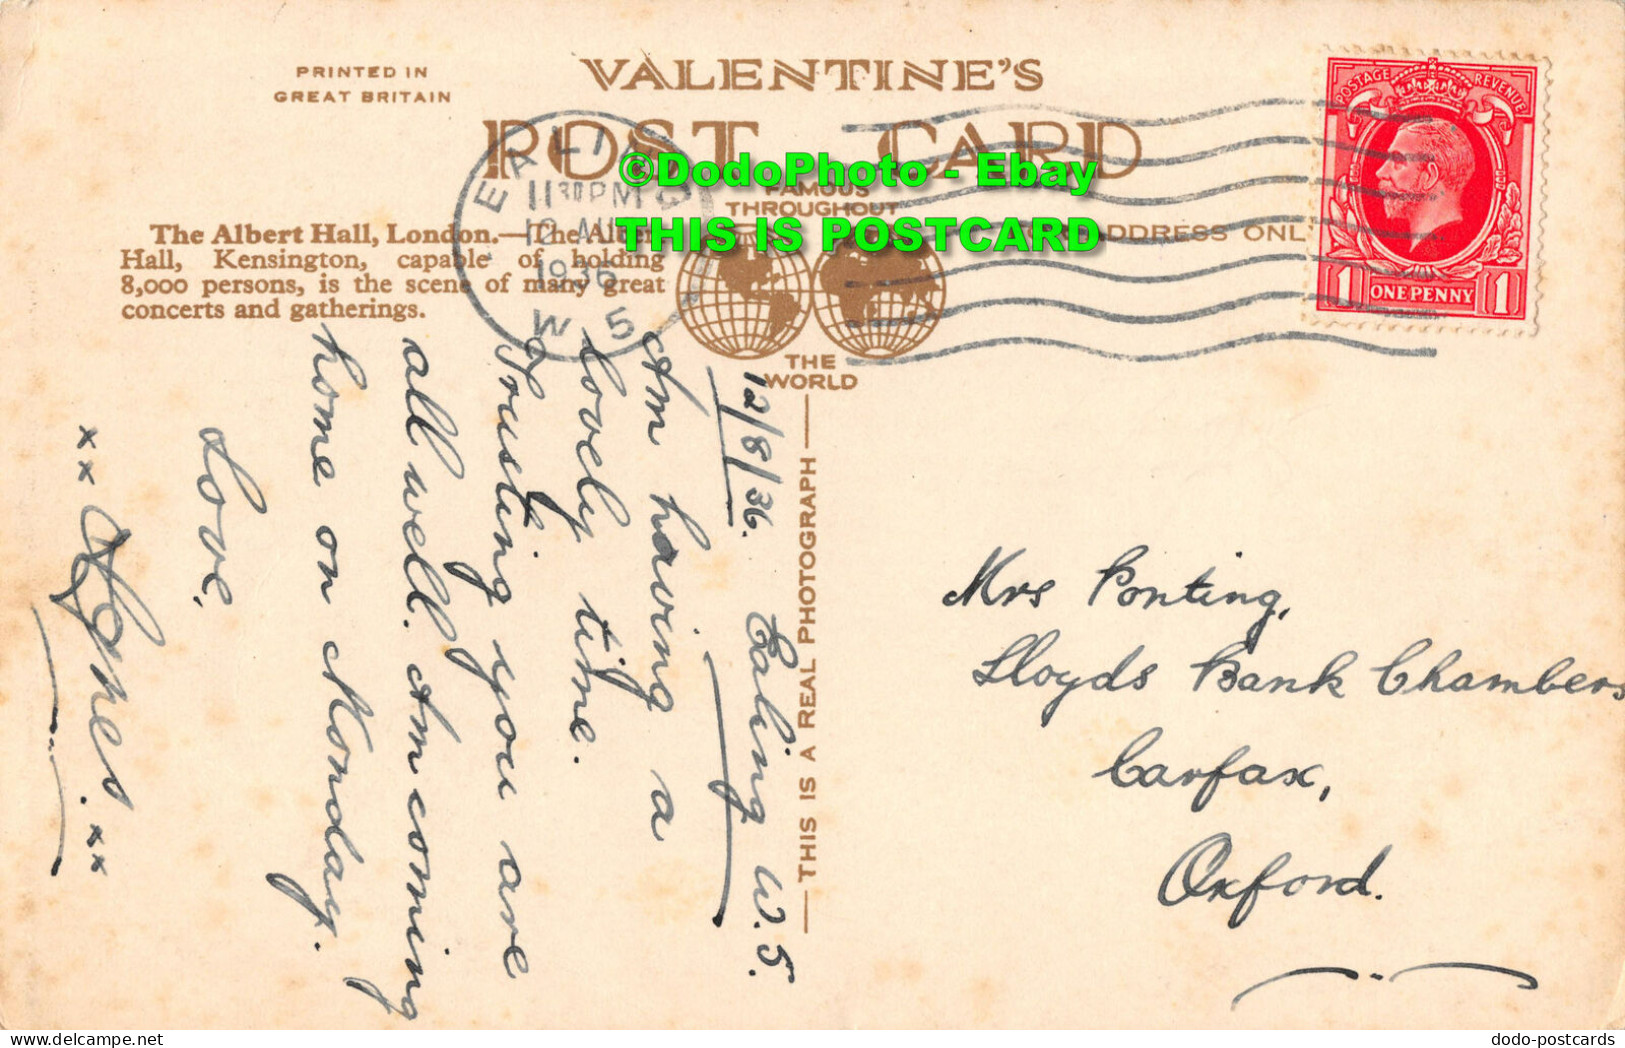 PRINTED IN
GREAT BRITAIN
VALENTINE'S
POST CARD
FAMOUS
THROUGHOUT
THE
WORLD
ADDRESS ONL
The Albert Hall, London.—The Albert
Hall, Kensington, capable of holding
8,000 persons, is the scene of many great
concerts and gatherings.
EALING
11 30 PM
12 AU
1936
W 5
POSTAGE REVENUE
1 ONE PENNY 1
©DodoPhoto - Ebay
THIS IS POSTCARD
THIS IS A REAL PHOTOGRAPH
12/8/36. Ealing W.5.
Am having a
lovely time.
Trusting you are
all well. Am coming
home on Monday.
Love.
xx Agnes. xx
Mrs Ponting,
Lloyds Bank Chambers
Carfax,
Oxford.
dodo-postcards